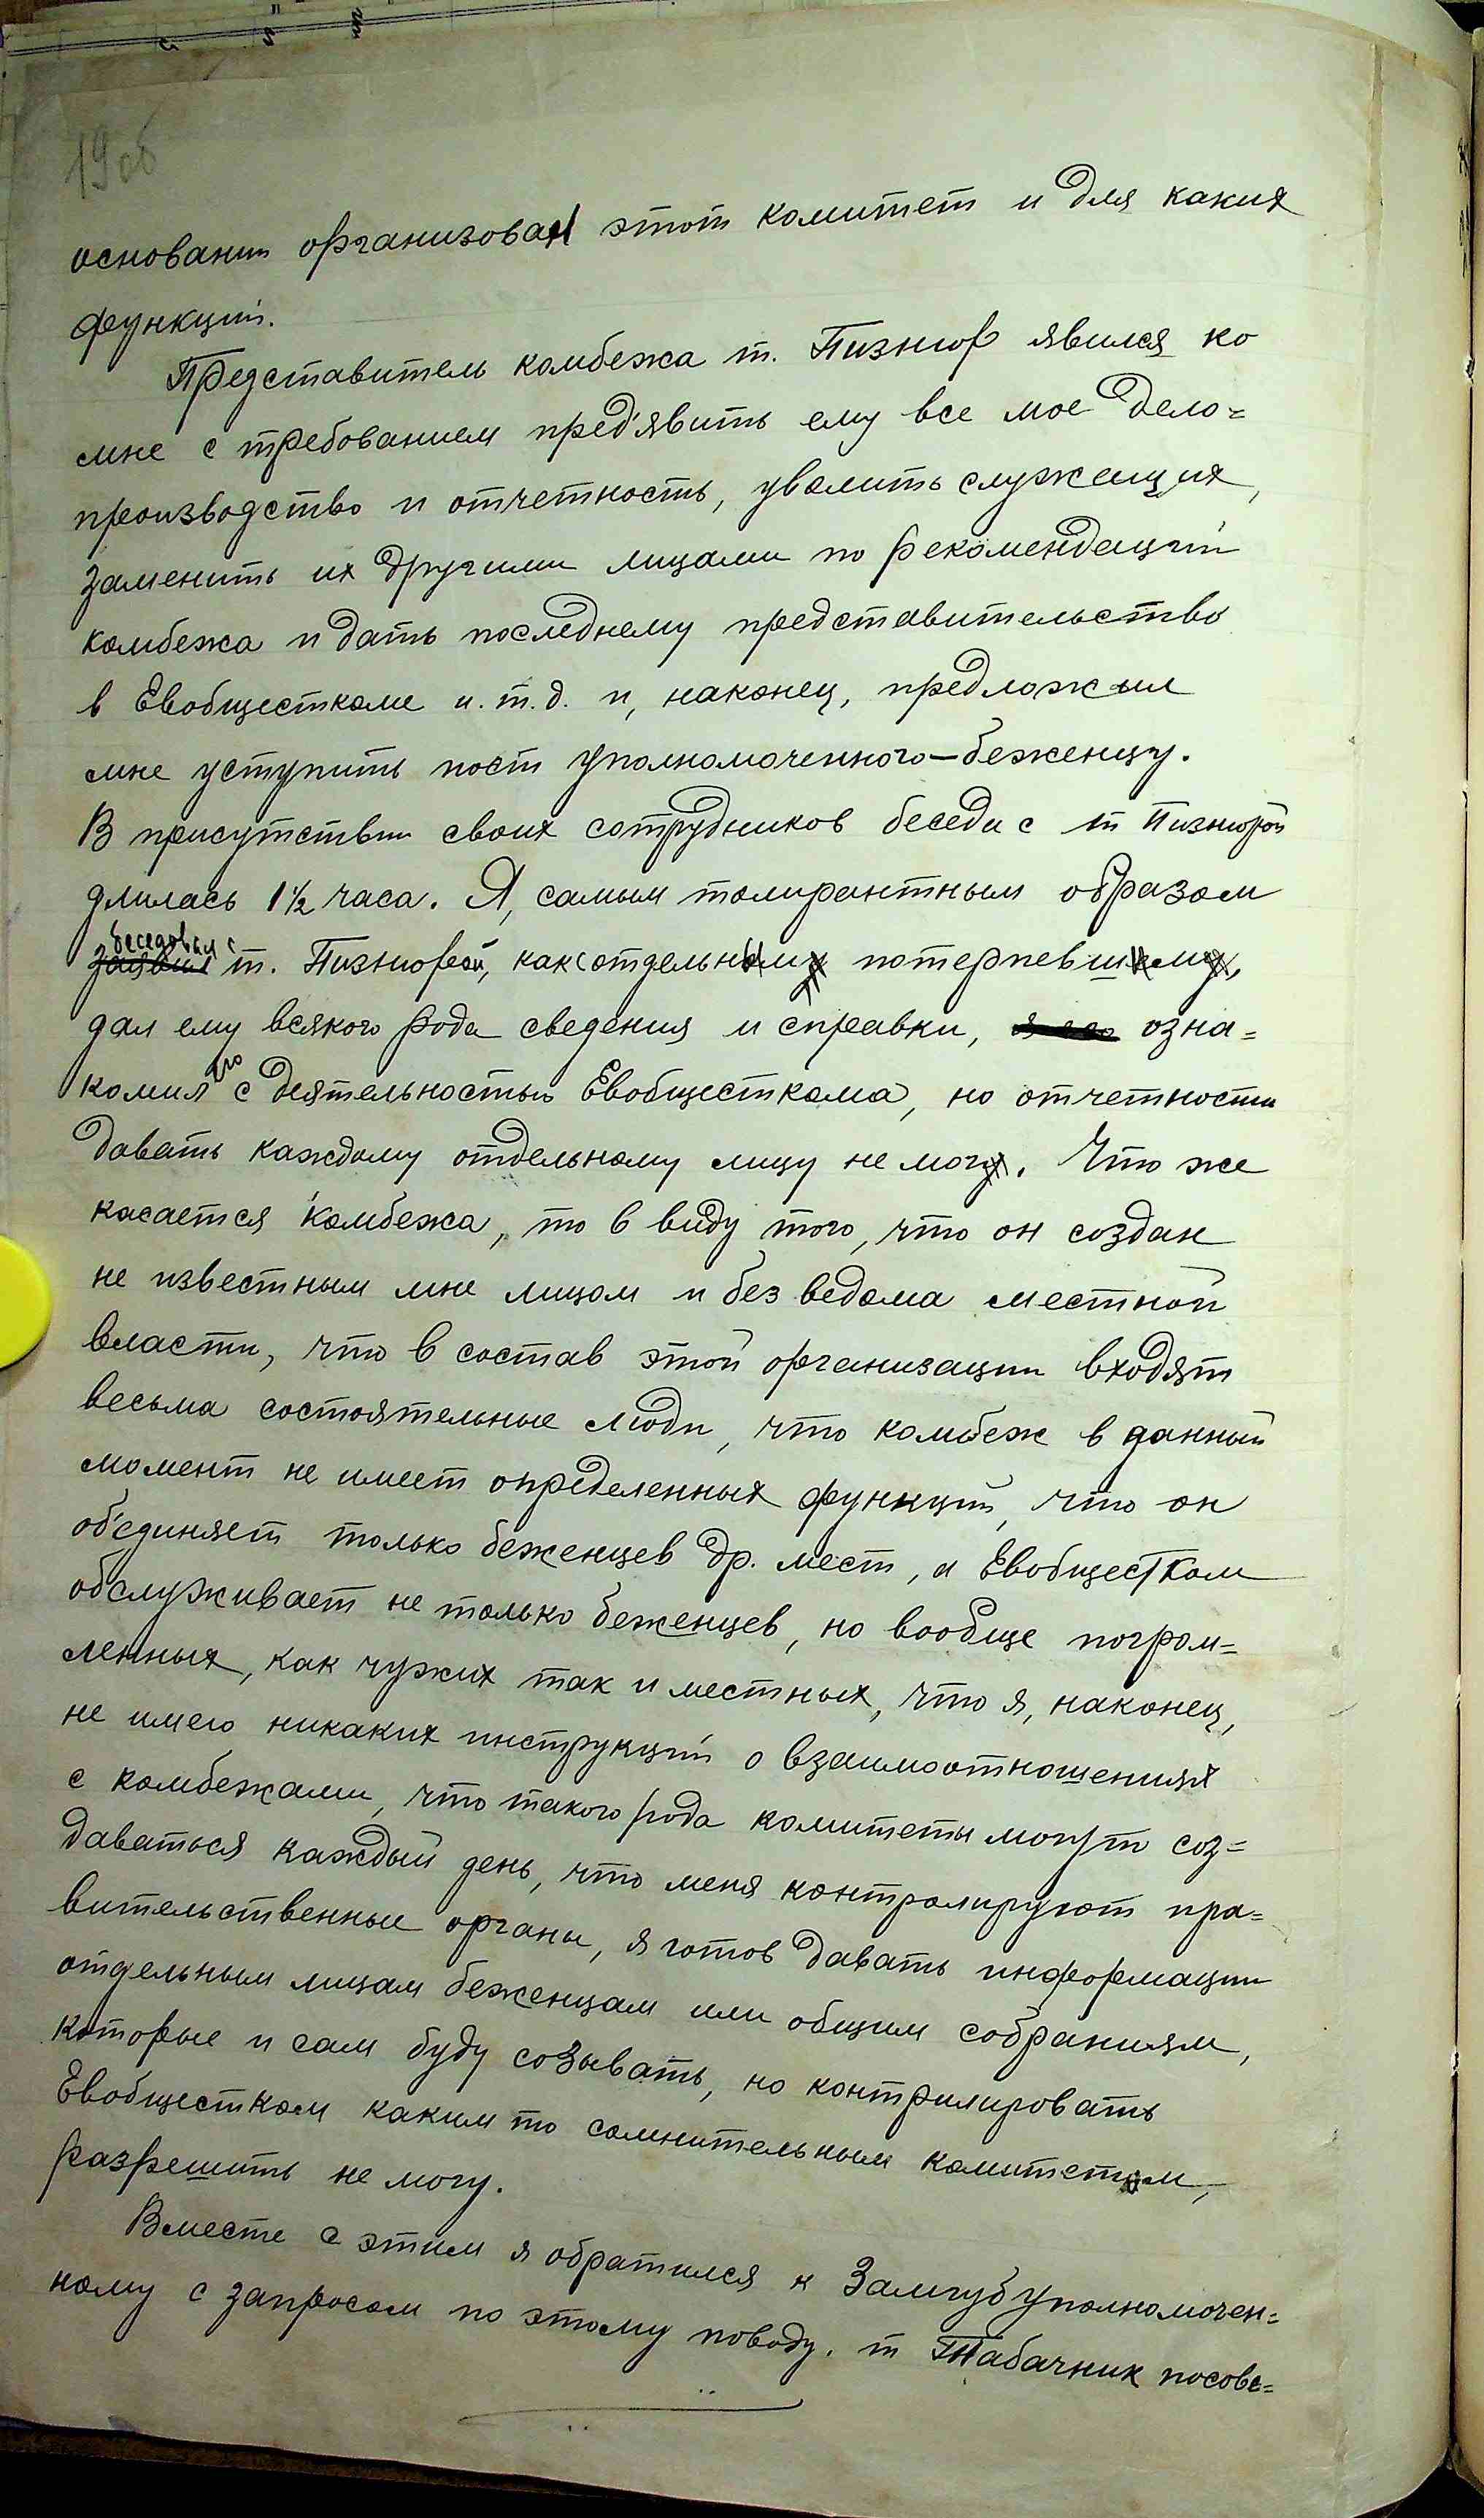 19об
основании организован этот комитет и для каких
функций.
Представитель комбежа т. Пизнюр явился ко
мне с требованием пред'явить ему все мое дело=
производство и отчетность, уволить служащих,
заменить их другими лицами по рекомендаций
комбежа и дать последнему представительство
в Евобщесткоме и.т.д. и, наконец, предложил
мне уступить пост уполномоченного-беженцу.
В присутствии своих сотрудников беседа с т Пизнюрой
длилась 1½ часа. Я, самым толирантным образом
беседовал с
т. Пизнюрой, как с отдельным потерпевшим,
дал ему всякого рода сведения и справки, озна=
комил его с деятельностью Евобщесткома, но отчетности
давать каждому отдельному лицу не мог. Что же
касается Комбежа, то в виду того, что он создан
не известным мне лицом и без ведома местной
власти, что в состав этой организации входят
весьма состоятельные люди, что комбеж в данный
момент не имеет определенных функций, что он
об'единяет только беженцев др. мест, а Евобщестком
обслуживает не только беженцев, но вообще погром=
ленных, как чужих так и местных, что я, наконец,
не имею никаких инструкций о взаимоотношениях
с комбежами, что такого рода комитеты могут соз=
даваться каждый день, что меня контролируют пра=
вительственные органы, я готов давать информации
отдельным лицам беженцам или общим собраниям,
которые и сам буду созывать, но контрилировать
Евобщестком каким то сомнительным комитетам,
разрешить не могу.
Вместе с этим я обратился к Замгубуполномочен=
ному с запросом по этому поводу. т Табачник посове=